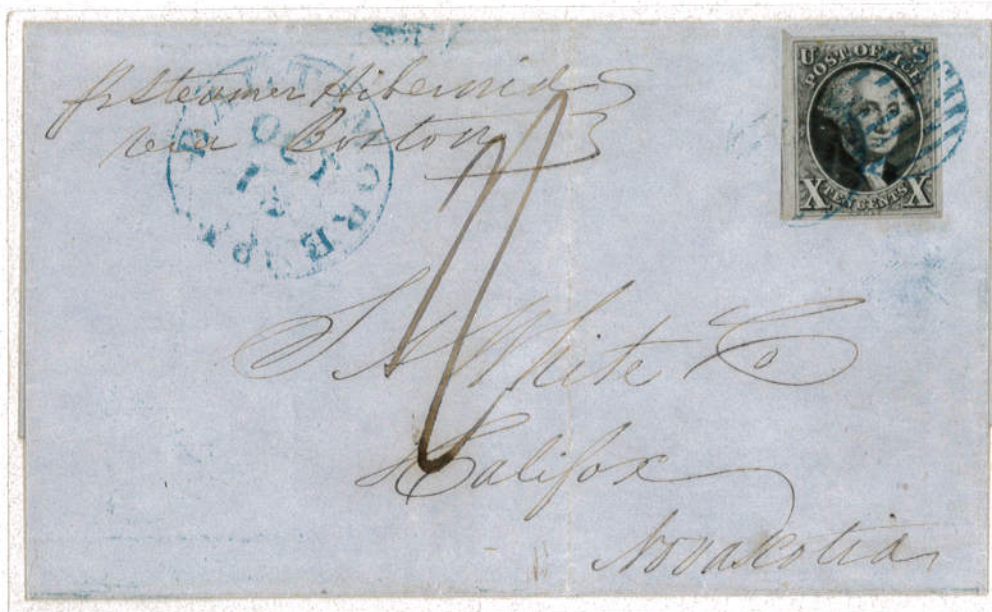 pr Steamer Hibernia
via Boston
BALTIMORE Md.
OCT
U S
POST OFFICE
X TEN CENTS X
S A White Co
Halifax
Novascotia